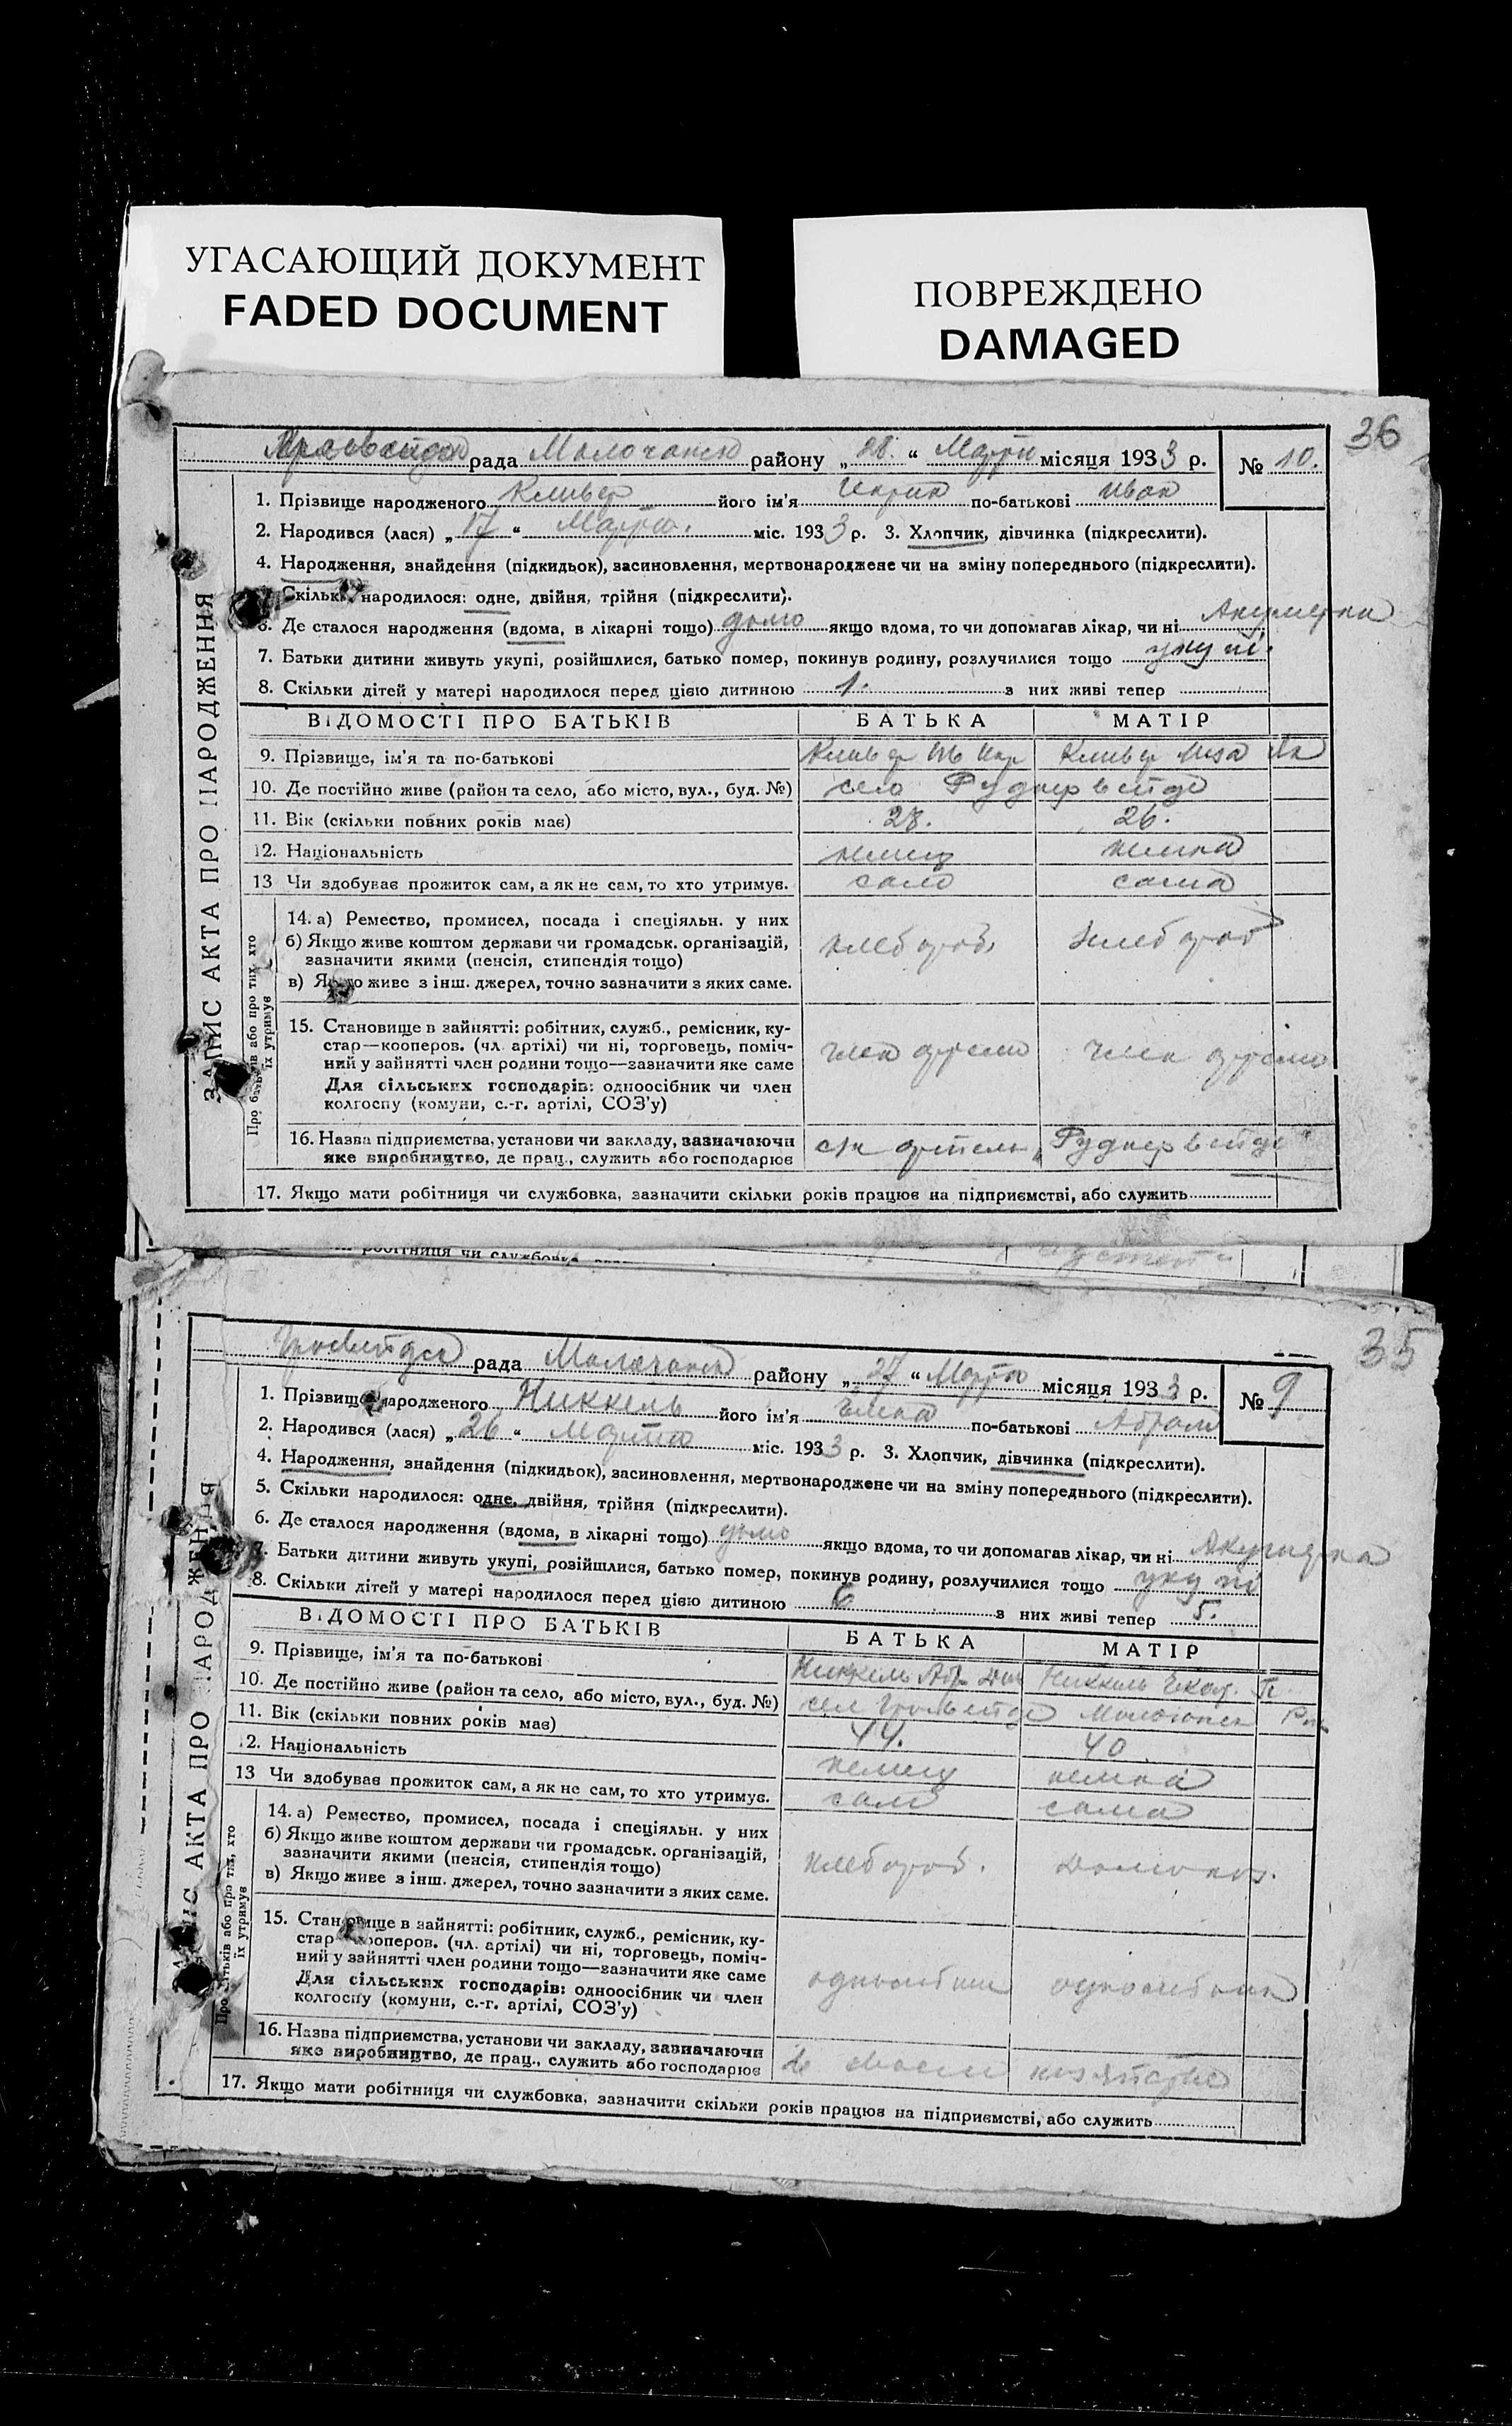 УГАСАЮЩИЙ ДОКУМЕНТ
FADED DOCUMENT
ПОВРЕЖДЕНО
DAMAGED
36
рада Молочанск району „28“ Марта місяця 1933 р. № 10.
1. Прізвище народженого Кливер його ім'я по-батькові Иван
2. Народився (лася) „17“ Марта. міс. 1933 р. 3. Хлопчик, дівчинка (підкреслити).
4. Народження, знайдення (підкидьок), засиновлення, мертвонароджене чи на зміну попереднього (підкреслити).
Скільки народилося: одне, двійня, трійня (підкреслити).
6. Де сталося народження (вдома, в лікарні тощо) дома якщо вдома, то чи допомагав лікар, чи ні Акушерка
7. Батьки дитини живуть укупі, розійшлися, батько помер, покинув родину, розлучилися тощо укупі.
8. Скільки дітей у матері народилося перед цією дитиною 1. з них живі тепер
ЗАПИС АКТА ПРО НАРОДЖЕННЯ
ВІДОМОСТІ ПРО БАТЬКІВ БАТЬКА МАТІР
9. Прізвище, ім'я та по-батькові Кливер Ив Кливер Лиза Як
10. Де постійно живе (район та село, або місто, вул., буд. №) село Руднервейде
11. Вік (скільки повних років має) 28. 26.
12. Національність немец немка
13 Чи здобуває прожиток сам, а як не сам, то хто утримує. сам сама
Про батьків або про тих, хто їх утримує
14. а) Ремество, промисел, посада і спеціяльн. у них
б) Якщо живе коштом держави чи громадськ. організацій,
зазначити якими (пенсія, стипендія тощо) хлебороб хлебороб
в) Якщо живе з інш. джерел, точно зазначити з яких саме.
15. Становище в зайнятті: робітник, служб., ремісник, ку-
стар—кооперов. (чл. артілі) чи ні, торговець, поміч-
ний у зайнятті член родини тощо—зазначити яке саме член артели член артели
Для сільських господарів: одноосібник чи член
колгоспу (комуни, с.-г. артілі, СОЗ'у)
16. Назва підприємства, установи чи закладу, зазначаючи с/х артель „Руднервейде“
яке виробництво, де прац., служить або господарює
17. Якщо мати робітниця чи службовка, зазначити скільки років працює на підприємстві, або служить
робітниця чи службовка
35
Гросвейде рада Молочанск району „27“ Марта місяця 1933 р. № 9
1. Прізвище народженого Никкель його ім'я Елена по-батькові Абрам
2. Народився (лася) „26“ Марта міс. 1933 р. 3. Хлопчик, дівчинка (підкреслити).
4. Народження, знайдення (підкидьок), засиновлення, мертвонароджене чи на зміну попереднього (підкреслити).
5. Скільки народилося: одне, двійня, трійня (підкреслити).
6. Де сталося народження (вдома, в лікарні тощо) дома якщо вдома, то чи допомагав лікар, чи ні Акушерка
7. Батьки дитини живуть укупі, розійшлися, батько помер, покинув родину, розлучилися тощо укупі
8. Скільки дітей у матері народилося перед цією дитиною 6 з них живі тепер 5.
ЗАПИС АКТА ПРО НАРОДЖЕННЯ
ВІДОМОСТІ ПРО БАТЬКІВ БАТЬКА МАТІР
9. Прізвище, ім'я та по-батькові Никкель Абр. Никкель Екат.
10. Де постійно живе (район та село, або місто, вул., буд. №) сел Гросвейде Молочанск
11. Вік (скільки повних років має) 44. 40
12. Національність немец немка
13 Чи здобуває прожиток сам, а як не сам, то хто утримує. сам сама
Про батьків або про тих, хто їх утримує
14. а) Ремество, промисел, посада і спеціяльн. у них
б) Якщо живе коштом держави чи громадськ. організацій,
зазначити якими (пенсія, стипендія тощо) хлебороб. домохоз.
в) Якщо живе з інш. джерел, точно зазначити з яких саме.
15. Становище в зайнятті: робітник, служб., ремісник, ку-
стар—кооперов. (чл. артілі) чи ні, торговець, поміч-
ний у зайнятті член родини тощо—зазначити яке саме
Для сільських господарів: одноосібник чи член
колгоспу (комуни, с.-г. артілі, СОЗ'у)
16. Назва підприємства, установи чи закладу, зазначаючи в своем хозяйстве
яке виробництво, де прац., служить або господарює
17. Якщо мати робітниця чи службовка, зазначити скільки років працює на підприємстві, або служить